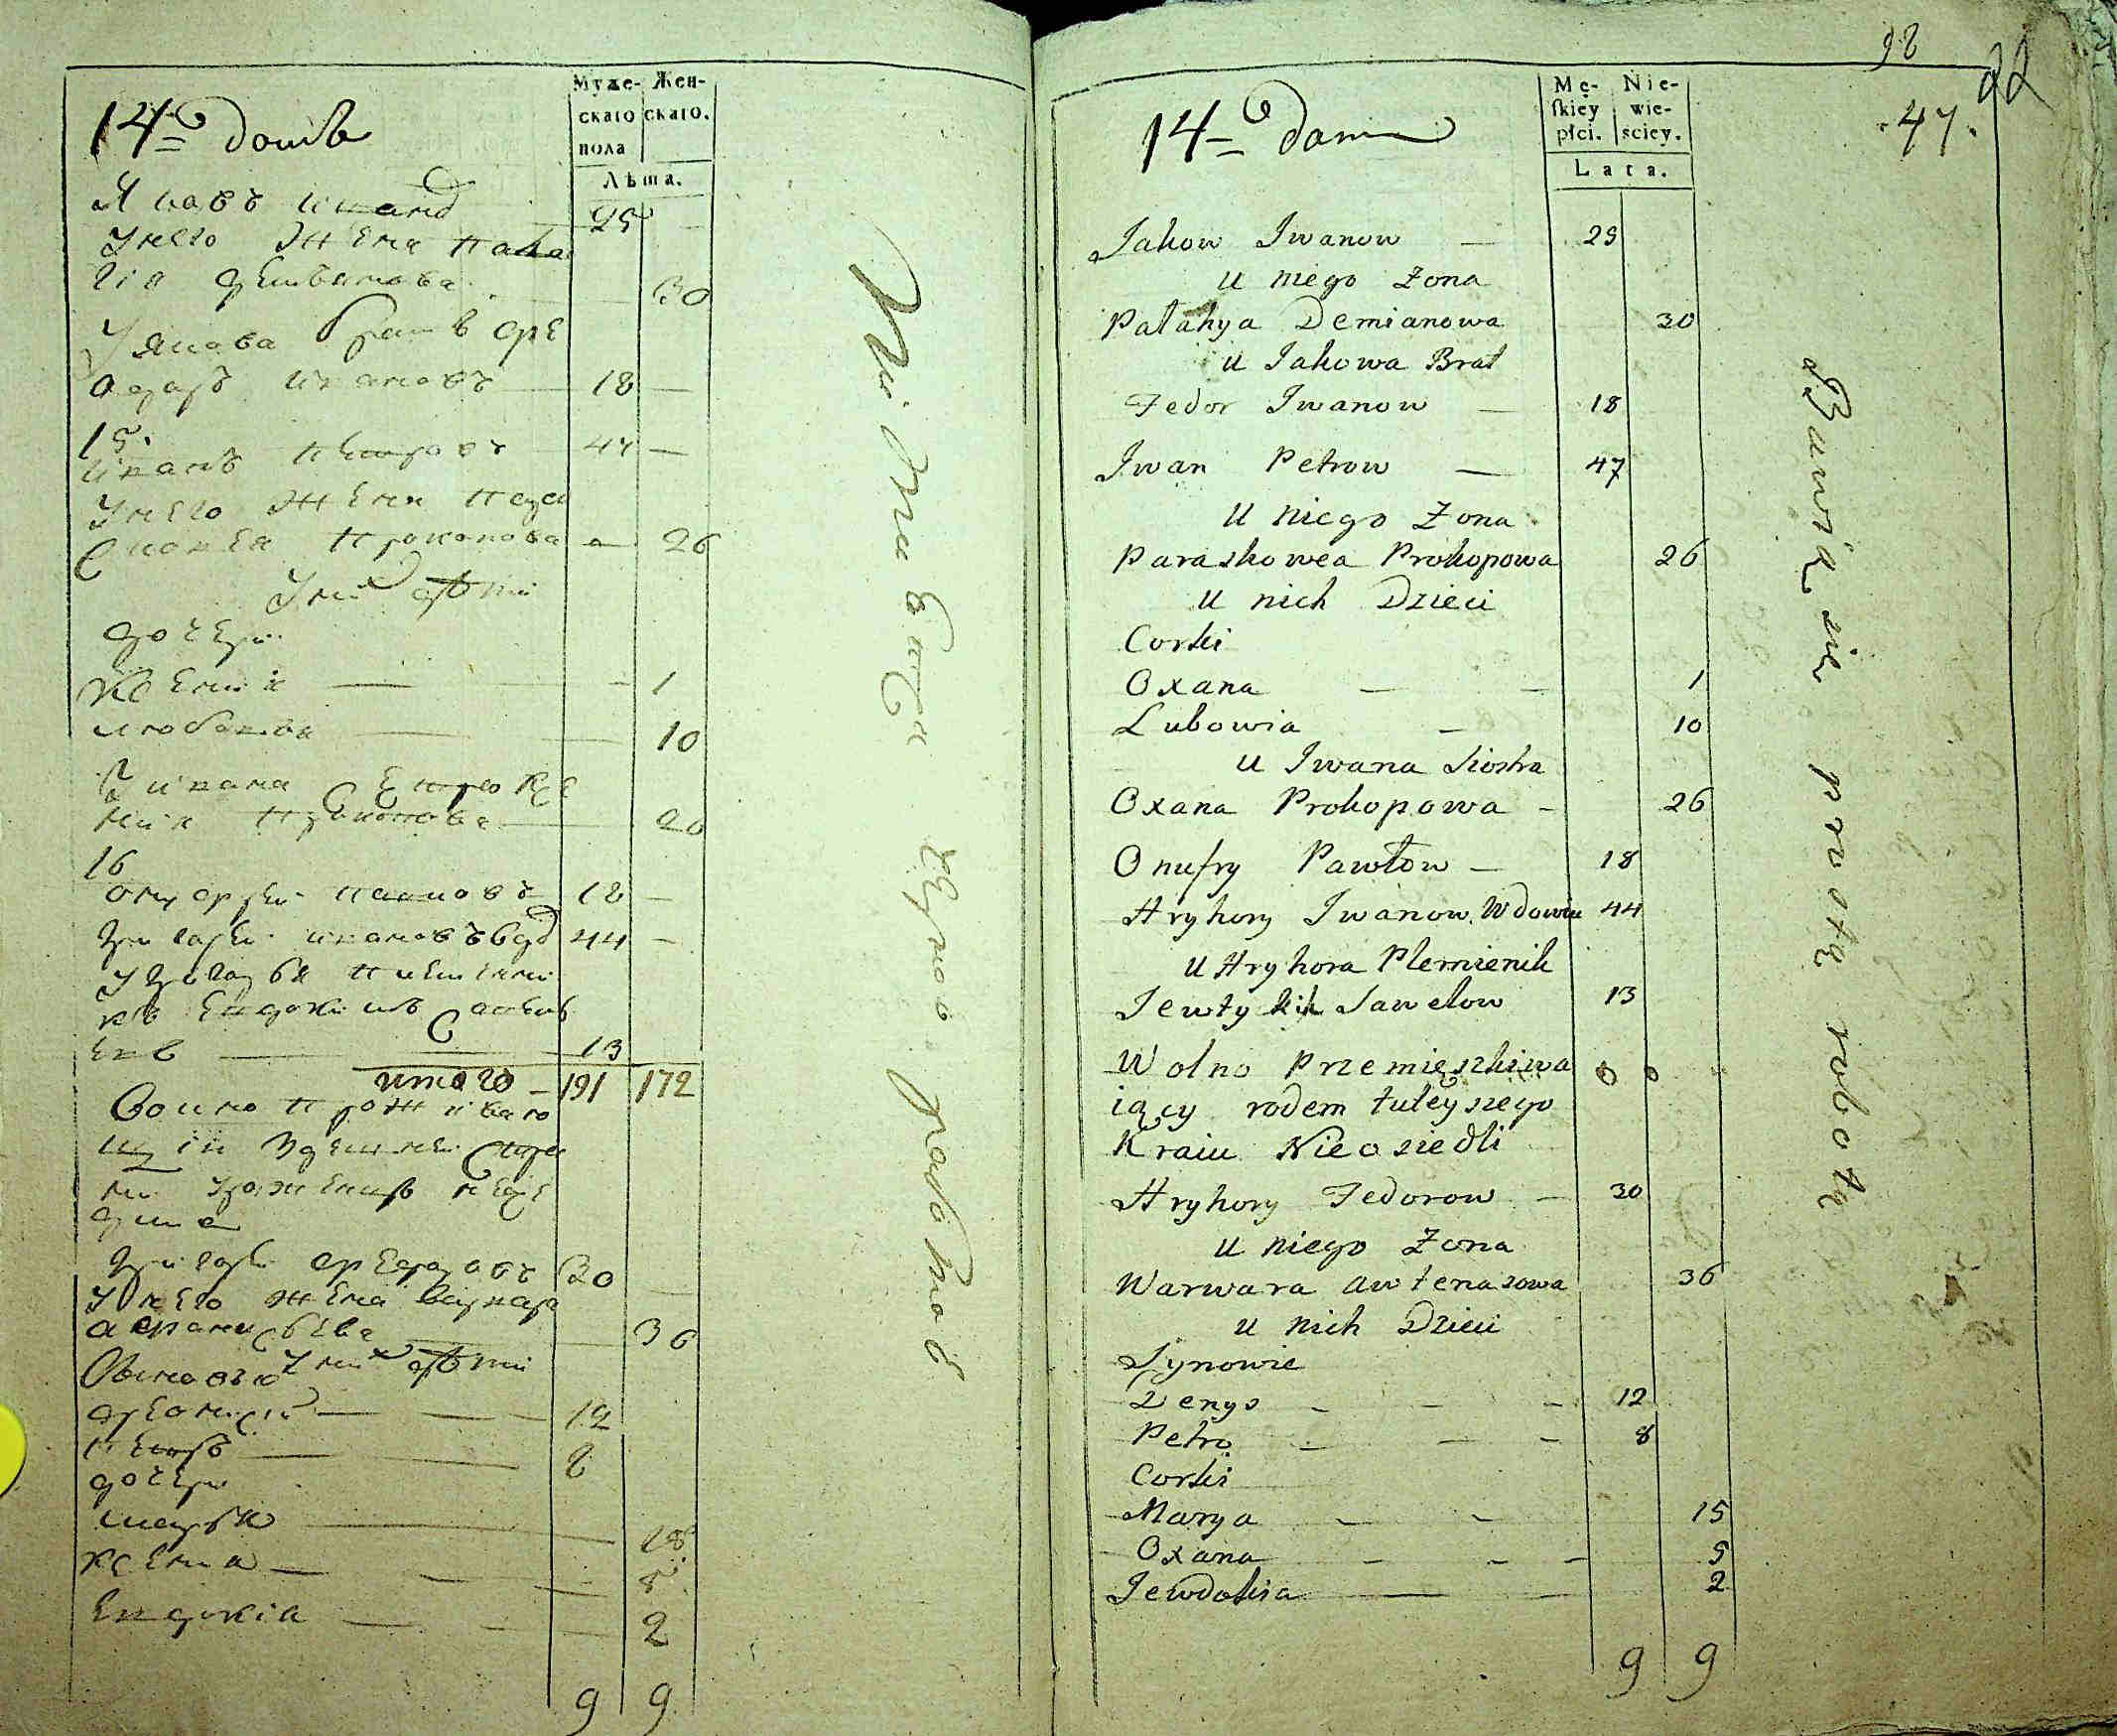 14го домъ
Муже- Жен-
скаго скаго.
пола
Лѣта.
Яковъ Иванов 25 —
У него Жена Пала
гія Демьянова 30
У Якова братъ Фе
одоръ Ивановъ 18 —
15.
Иванъ Петровъ 47 —
У него Жена Пара
сковея Прокопова 26
У них дѣти
дочери
Ксения 1
Любовва 10
У Ивана Сестра Ксе
ния Прокопова 20
16
Онуфрей Павловъ 18 —
Григорей Ивановъ вдо 44 —
У Григорья племянни
къ Евдокимъ Савель
евъ 13
итого 191 172
Вольно Прожываю
щіи Здешней стра
ны
Григорей Федоровъ 30
У него Жена Варвара
36
Сыновья У них дѣти
12
Петръ 8
дочери
Марья 15
Ксенія 5
Евдокія 2
9 9
работой
98
92
47.
14го Dom
Mę- Nie-
skiey wie-
płci. sciey.
Lata.
Jakow Iwanow — 25
u niego Żona
Pałahya Demianowa 30
u Jakowa Brat
Fedor Iwanow — 18
Iwan Petrow — 47
u niego Żona
Paraskowea Prokopowa 26
u nich Dzieci
Corki
Oxana — — 1
Lubowia — 10
u Iwana Siostra
Oxana Prokopowa — 26
Onufry Pawłow — 18
Hryhory Iwanow Wdowiec 44
u Hryhora Plemienik
Jewtykih Sawelow 13
Wolno Przemięszkiwa 0 0
iący rodem tuteyszego
Kraiu Nieosiedli
Hryhory Fedorow — 30
u niego Żona
Warwara Awtenasowa 36
u nich Dzieci
Synowie
Denys — — — 12
Petro — — — 8
Corki
Marya — — 15
Oxana — — — 5
Jewdokia — — 2
9 9
Bawią się prostą robotą